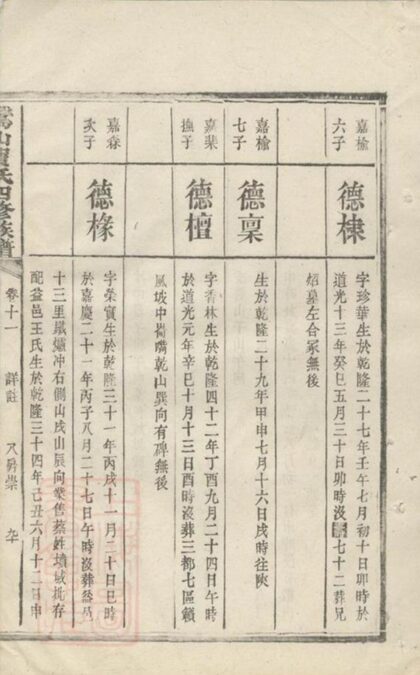 嘉榆
六子
德棣
字珍華生於乾隆二十七年壬午七月初十日卯時於
道光十三年癸巳五月三十日卯時沒壽七十二葬兄
炤墓左合冢無後
嘉榆
七子
德稟
生於乾隆二十九年甲申七月十六日戌時往陝
嘉棐
撫子
德檀
字香林生於乾隆四十二年丁酉九月二十四日午時
於道光元年辛巳十月十三日酉時沒葬三都七區籟
風坡中嘴乾山巽向有碑無後
嘉森
次子
德椽
字榮實生於乾隆三十一年丙戌十一月二十日巳時
於嘉慶二十一年丙子八月二十七日午時沒葬益邑
十三里鐵爐冲右側山戌山辰向業售蔡姓墳域批存
配益邑王氏生於乾隆三十四年己丑六月十二日申
山賀氏四修族譜
卷十一
詳註